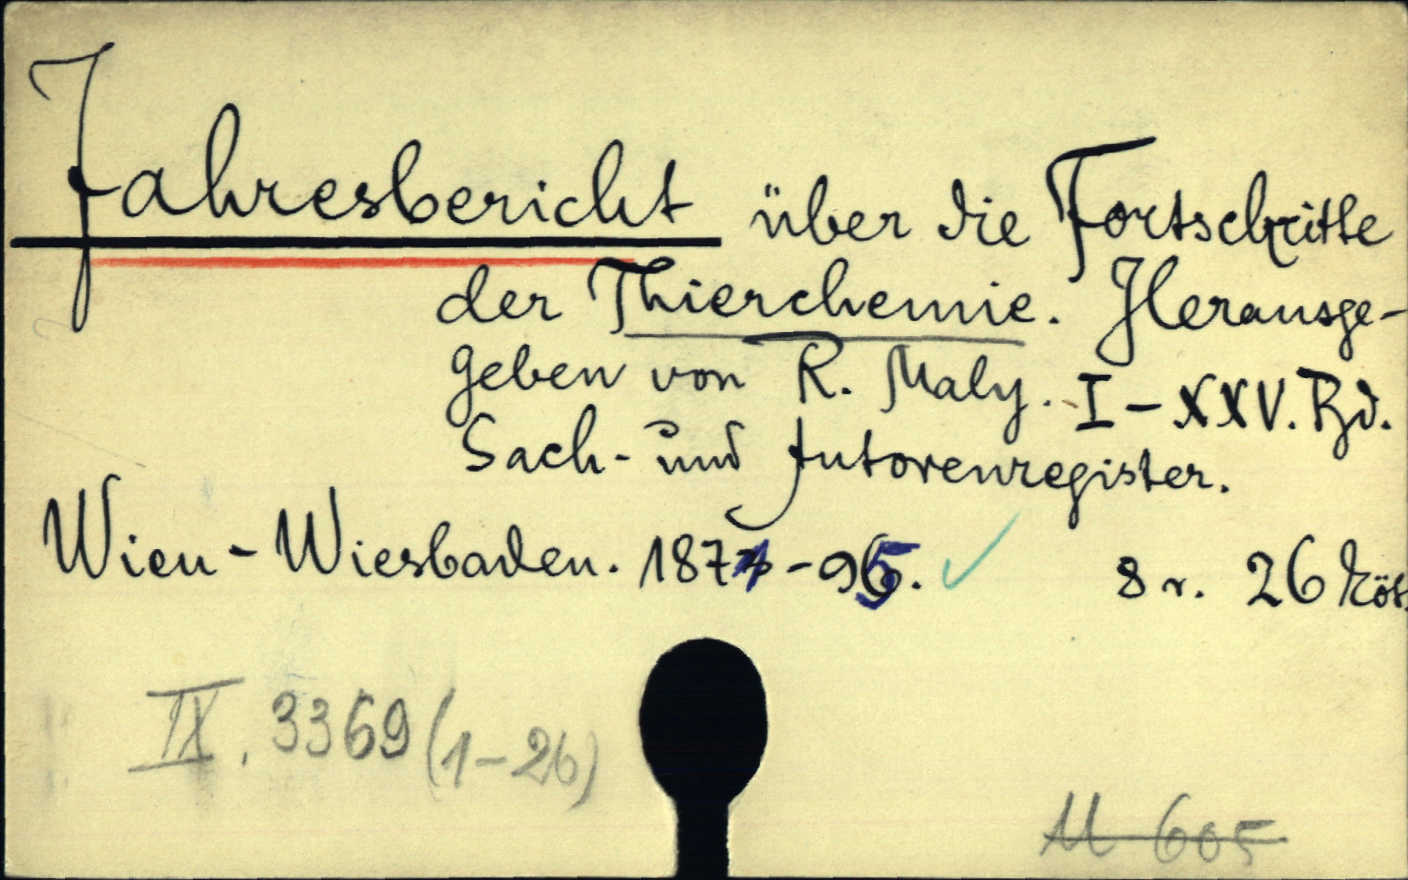 Jahresbericht über die Fortschritte
der Thierchemie. Herausge-
geben von R. Maly. I-XXV. Bd.
Sach- und Autorenregister.
Wien-Wiesbaden. 1874-95. 8 r. 26 köt.
IX. 3369 (1-26)
M 605